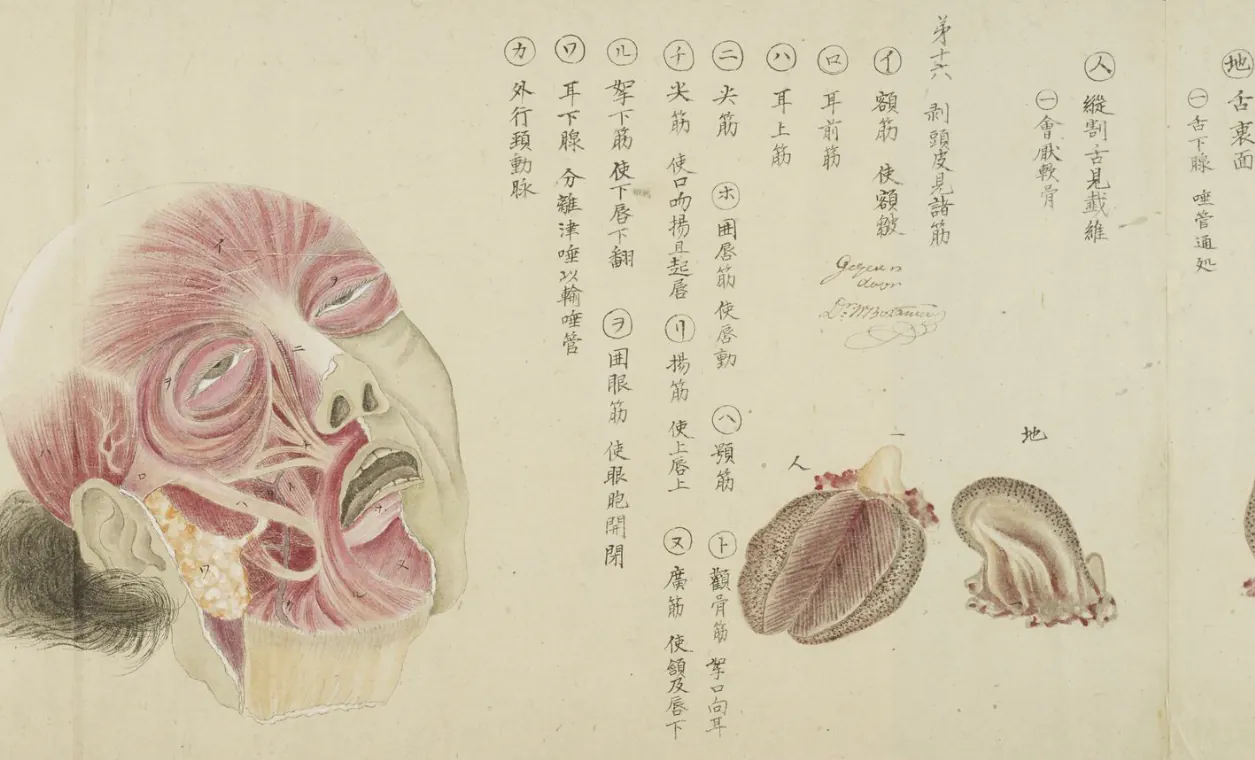 ㊞地 舌裏面
㊀ 舌下腺 唾管通処
人 縱割舌見截維
㊀ 會厭軟骨
弟十六 剥頭皮見諸筋
イ 額筋 使額皺
ロ 耳前筋
ハ 耳上筋
ニ 尖筋 ホ 囲唇筋 使唇動 ヘ 顎筋 ト 顴骨筋 牽口向耳
チ 尖筋 使口吻揚且起唇 リ 揚筋 使上唇上 ヌ 廣筋 使頷及唇下
ル 牽下筋 使下唇下翻 ヲ 囲眼筋 使眼胞開閉
ワ 耳下腺 分離津唾以輸唾管
カ 外行頚動脉
Gezien
door
Dr.
地
一
人
イ
ヲ
ニ
ヲ
ハ
ロ
ワ
ル
ヌ